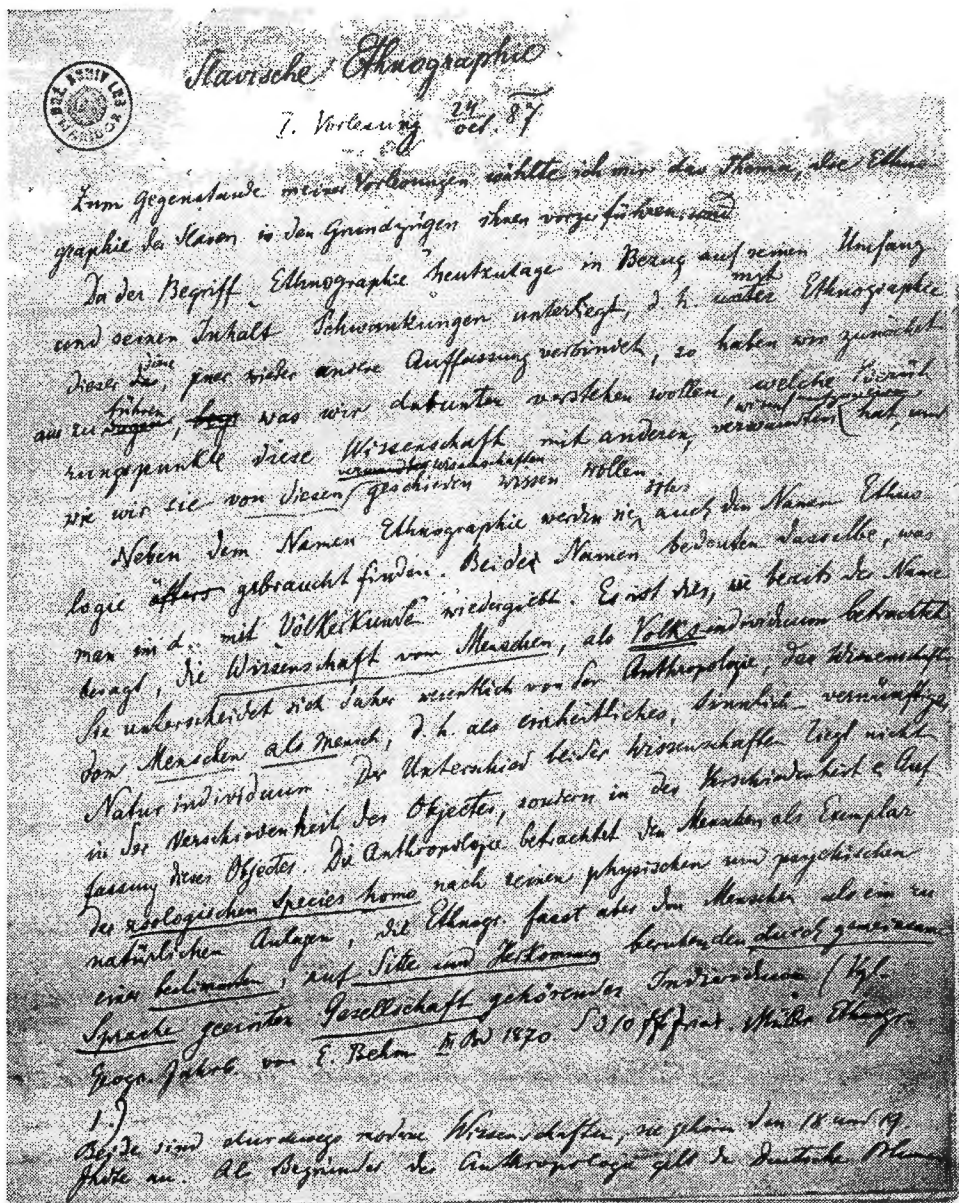 Slavische Ethnographie
I. Vorlesung 24 oct. 87
Zum Gegenstande meiner Vorlesungen wählte ich mir das Thema, die Ethno
graphie der Slaven in den Grundzügen ihnen vorzuführen, und
Da der Begriff Ethnographie heutzutage in Bezug auf seinen Umfang
und seinen Inhalt Schwankungen unterliegt, d. h. mit unter Ethnographie
dieser die eine, jener wieder andere Auffassung verbindet, so haben wir zunächst
auszuführen, was wir darunter verstehen wollen, welche
rungspunkte diese Wissenschaft mit anderen, verwandten hat, und
wie wir sie von diesen verwandten Wissenschaften geschieden wissen wollen.
Neben dem Namen Ethnographie werden sie öfter auch den Namen Ethno
logie öfters gebraucht finden. Beide Namen bedeuten dasselbe, was
man im d. mit Völkerkunde wiedergiebt. Es ist dies, wie bereits der Name
besagt, die Wissenschaft vom Menschen, als Volksindividuum betrachtet
Sie unterscheidet sich daher wesentlich von der Anthropologie, der Wissenschaft
vom Menschen als Mensch, d. h. als einheitliches, sinnlich vernünftiges
Natur individuum. Der Unterschied beider Wissenschaften liegt nicht
in der Verschiedenheit des Objectes, sondern in der Verschiedenheit Auf
fassung dieses Objectes. Die Anthropologie betrachtet den Menschen als Exemplar
der zoologischen Species homo nach seinen physischen und psychischen
natürlichen Anlagen, die Ethnogr. fasst aber den Menschen als ein zu
einer bestimmten, auf Sitte und Herkommen beruhenden durch gemeinsame
Sprache geeinten Gesellschaft gehörendes Individuum (Vgl.
Geogr. Jahrb. von E. Behm III Bd 1870 S 310 ff Friedr. Müller Ethnogr.
1.)
Beide sind durchwegs moderne Wissenschaften, sie gehören dem 18 und 19
Jhdte an. Als Begründer der Anthropologie gilt der Deutsche Blumen